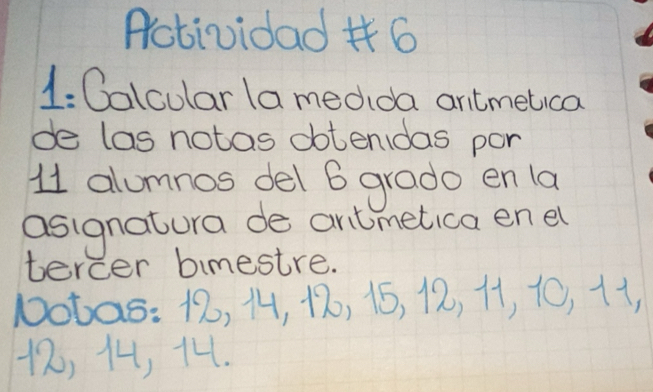 Actividad # 6
1: Calcular la medida aritmetica
de las notas obtenidas por
11 alumnos del 6 grado en la
asignatura de aritmetica en el
tercer bimestre.
Notas: 12, 14, 12, 15, 12, 11, 10, 11,
12, 14, 14.